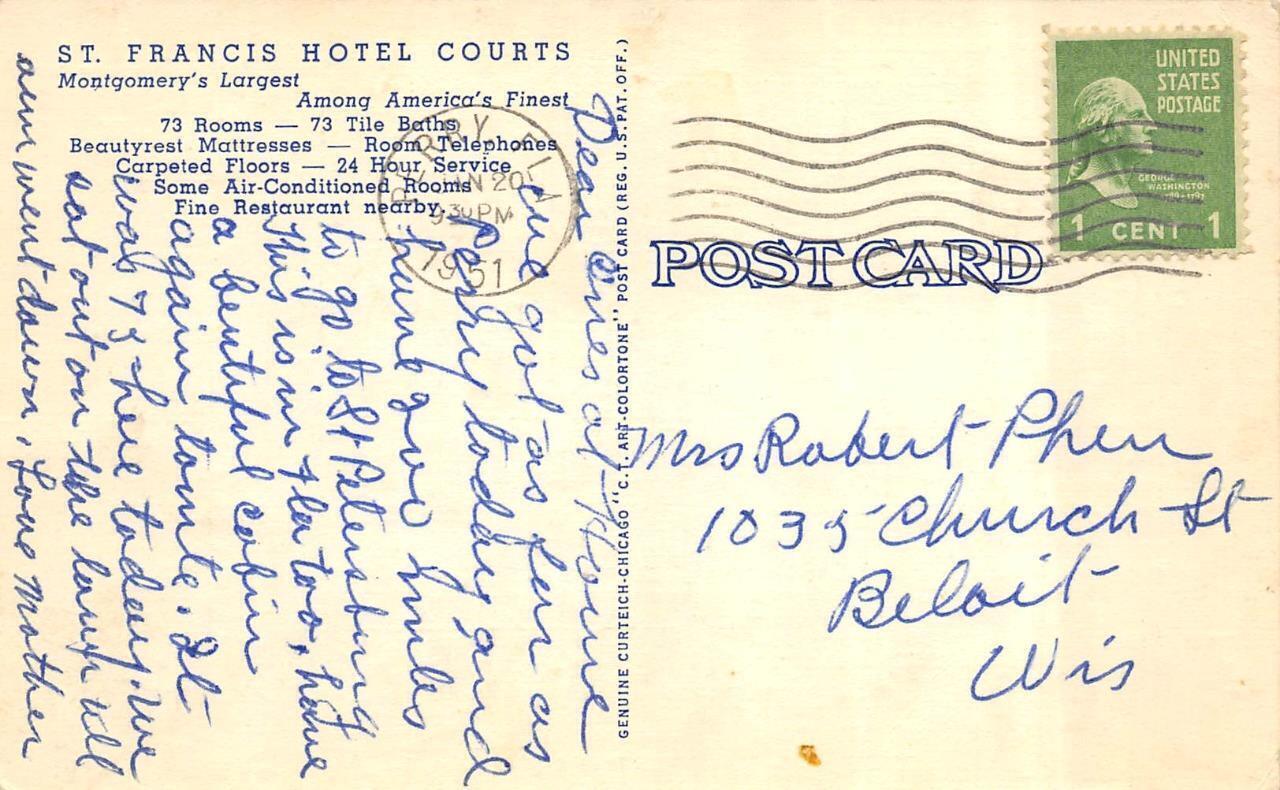 ST. FRANCIS HOTEL COURTS
Montgomery's Largest
Among America's Finest
73 Rooms — 73 Tile Baths
Beautyrest Mattresses — Room Telephones
Carpeted Floors — 24 Hour Service
Some Air-Conditioned Rooms
Fine Restaurant nearby.
PERRY FLA
JAN 20
9 30 PM
1951
Dear Ones at Home
we got as far as
Perry today and
have 200 miles
to go to St Petersburg
This is in Fla too, have
a beautiful cabin
again tonite. It
was 75 here today. we
sat out on the lawn till
sun went down. Love Mother
GENUINE CURTEICH-CHICAGO "C.T. ART-COLORTONE" POST CARD (REG. U.S. PAT. OFF.)
POST CARD
UNITED
STATES
POSTAGE
GEORGE
WASHINGTON
1789-1797
1 CENT 1
Mrs Robert
1035 Church St
Beloit
Wis